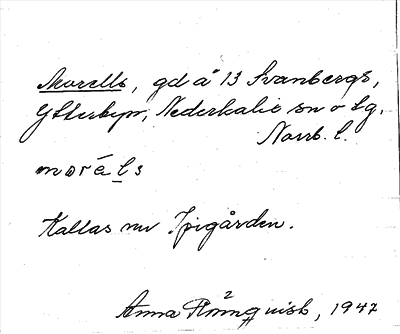 Morells, gd å 13 Svanbergs,
Ytterbyn, Nederkalix sn o tg.
Norrb. l.
morέls
Kallas nu Spigården.
Anna Rönnquist, 1947